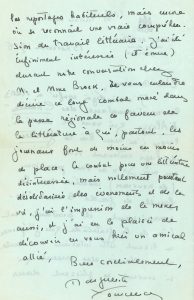 les reportages habituels, mais encore
où se reconnaît une vraie compréhen-
sion du travail littéraire. J'ai été
infiniment intéressée (et émue)
durant notre conversation chez
M. et Mme Brock, de vous entendre
décrire ce long combat mené dans
la presse régionale en faveur de
la littérature à qui, partout, les
journaux font de moins en moins
de place. Le combat pour une littérature
désintéressée, mais nullement pourtant
désolidarisée des événements et de la
vie, j'ai l'impression de le mener
aussi, et j'ai eu le plaisir de
découvrir en vous hier un amical
allié,
Bien cordialement,
Marguerite
Yourcenar